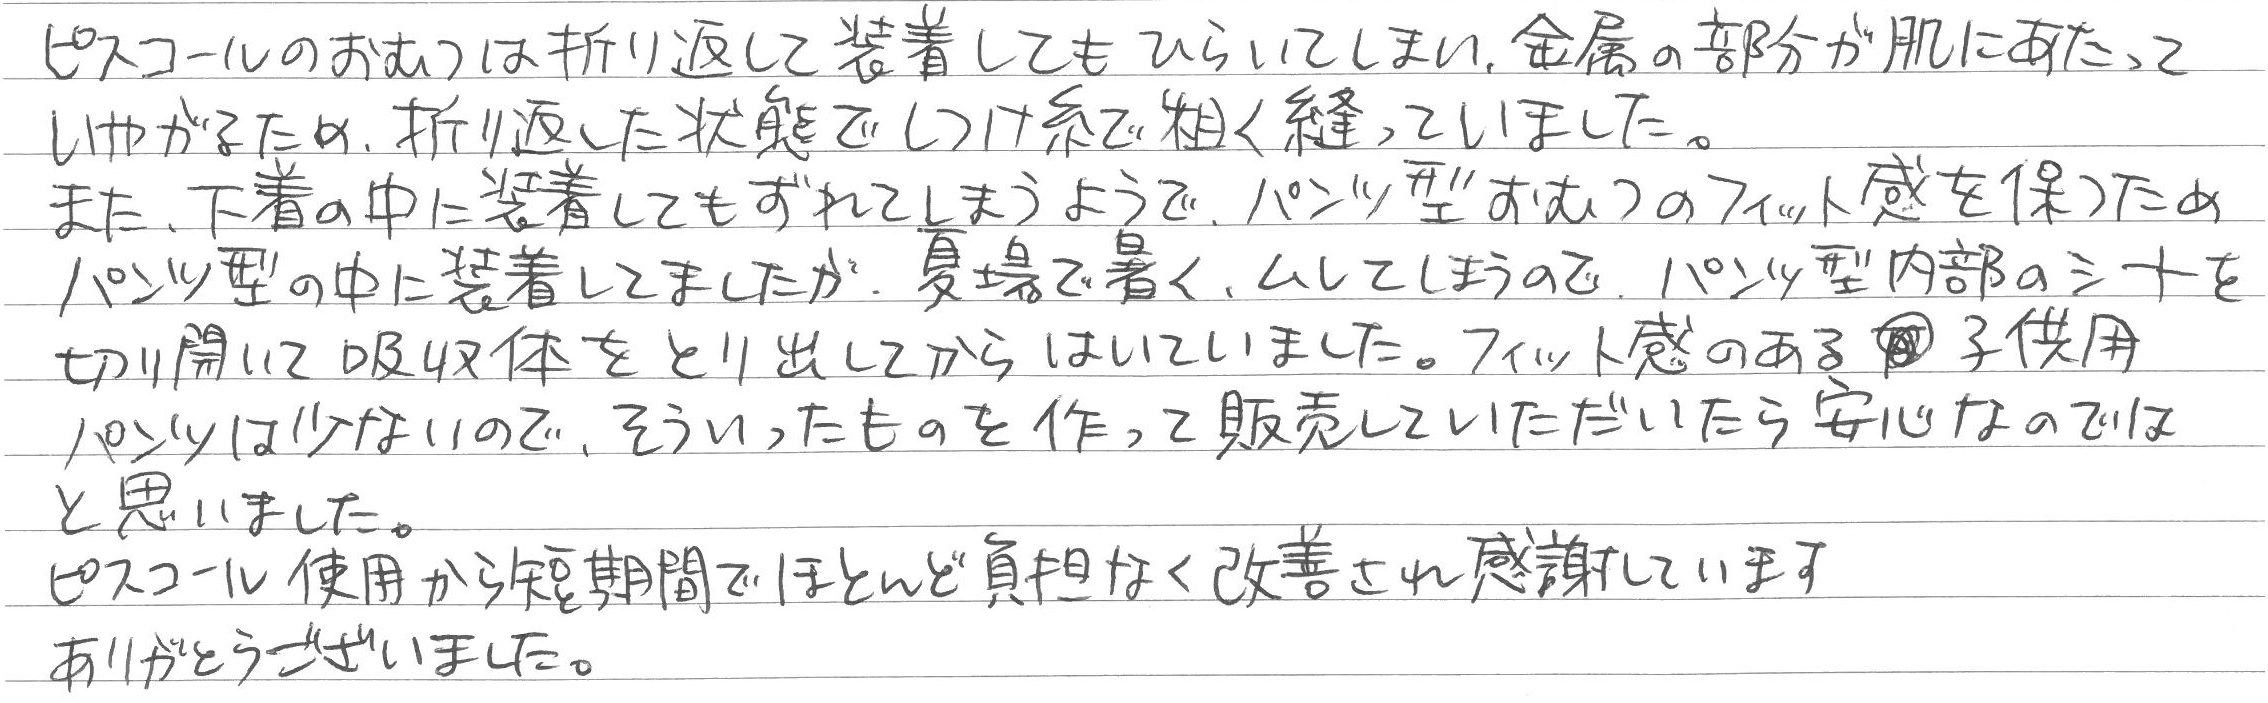 ピスコールのおむつは折り返して装着してもひらいてしまい、金属の部分が肌にあたって
いやがるため、折り返した状態でしつけ糸で粗く縫っていました。
また、下着の中に装着してもずれてしまうようで、パンツ型おむつのフィット感を保つため
パンツ型の中に装着してましたが、夏場で暑く、ムしてしまうので、パンツ型内部のシートを
切り開いて吸収体をとり出してからはいていました。フィット感のある子供用
パンツは少ないので、そういったものを作って販売していただいたら安心なのでは
と思いました。
ピスコール使用から短期間でほとんど負担なく改善され感謝しています
ありがとうございました。